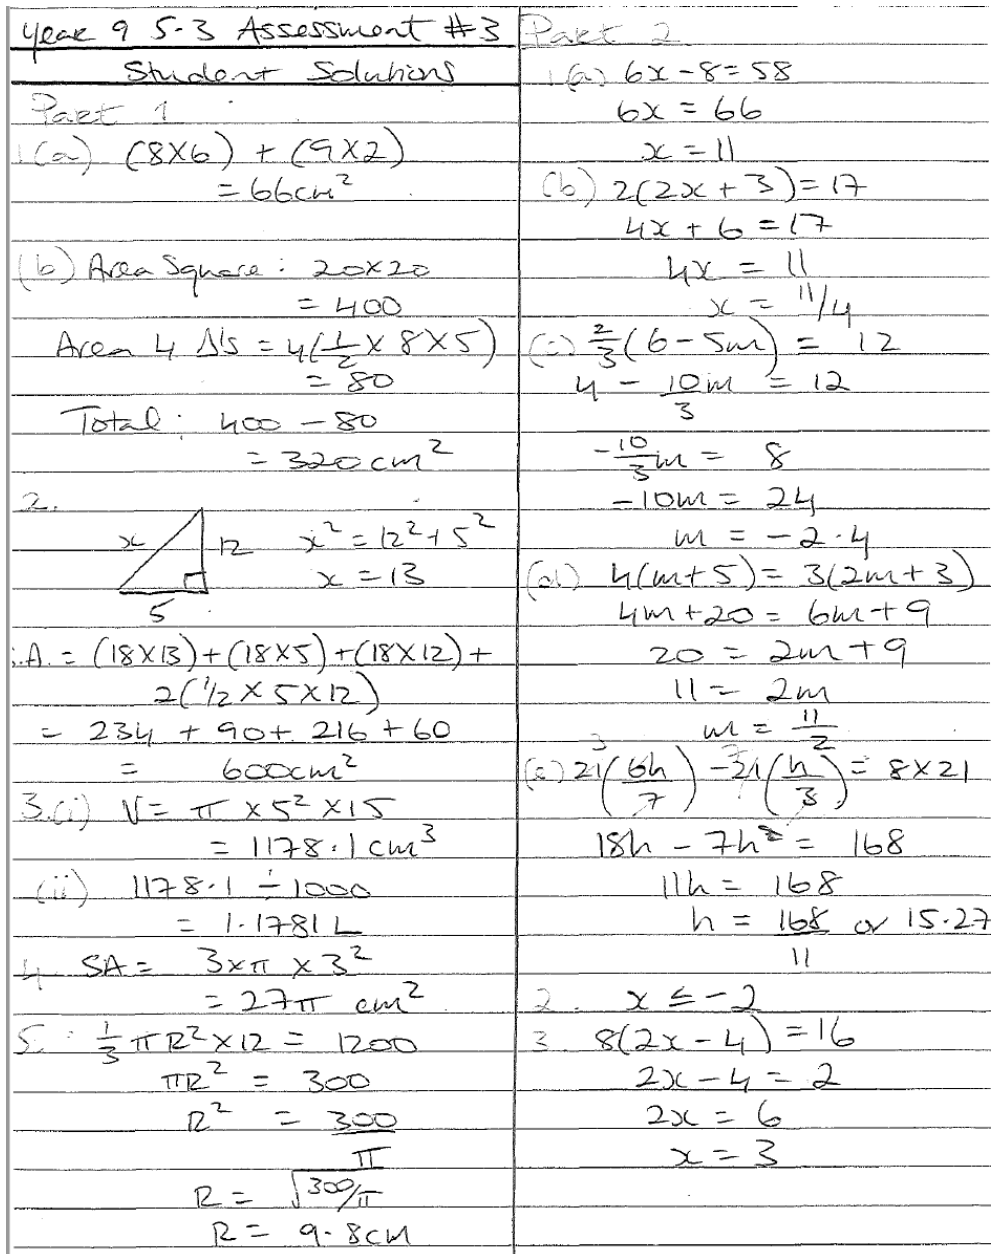 Year 9 5.3 Assessment #3
Student Solutions
Part 1
1(a) (8×6) + (9×2)
= 66cm²
(b) Area Square: 20×20
= 400
Area 4 Δ's = 4(1/2 × 8 × 5)
= 80
Total: 400 - 80
= 320cm²
2.
x 12 x² = 12² + 5²
x = 13
5
S.A. = (18×13) + (18×5) + (18×12) +
2(1/2 × 5 × 12)
= 234 + 90 + 216 + 60
= 600cm²
3.(i) V = π × 5² × 15
= 1178.1 cm³
(ii) 1178.1 ÷ 1000
= 1.1781 L
4. SA = 3×π × 3²
= 27π cm²
5. 1/3 πR² × 12 = 1200
πR² = 300
R² = 300/π
R = √300/π
R = 9.8cm
Part 2
1(a) 6x - 8 = 58
6x = 66
x = 11
(b) 2(2x + 3) = 17
4x + 6 = 17
4x = 11
x = 11/4
(c) 2/3(6 - 5m) = 12
4 - 10m/3 = 12
-10/3 m = 8
-10m = 24
m = -2.4
(d) 4(m+5) = 3(2m+3)
4m+20 = 6m+9
20 = 2m+9
11 = 2m
m = 11/2
(e) 21³(6h/7) - 21⁷(h/3) = 8×21
18h - 7h = 168
11h = 168
h = 168/11 or 15.27
2. x ≤ -2
3. 8(2x - 4) = 16
2x - 4 = 2
2x = 6
x = 3